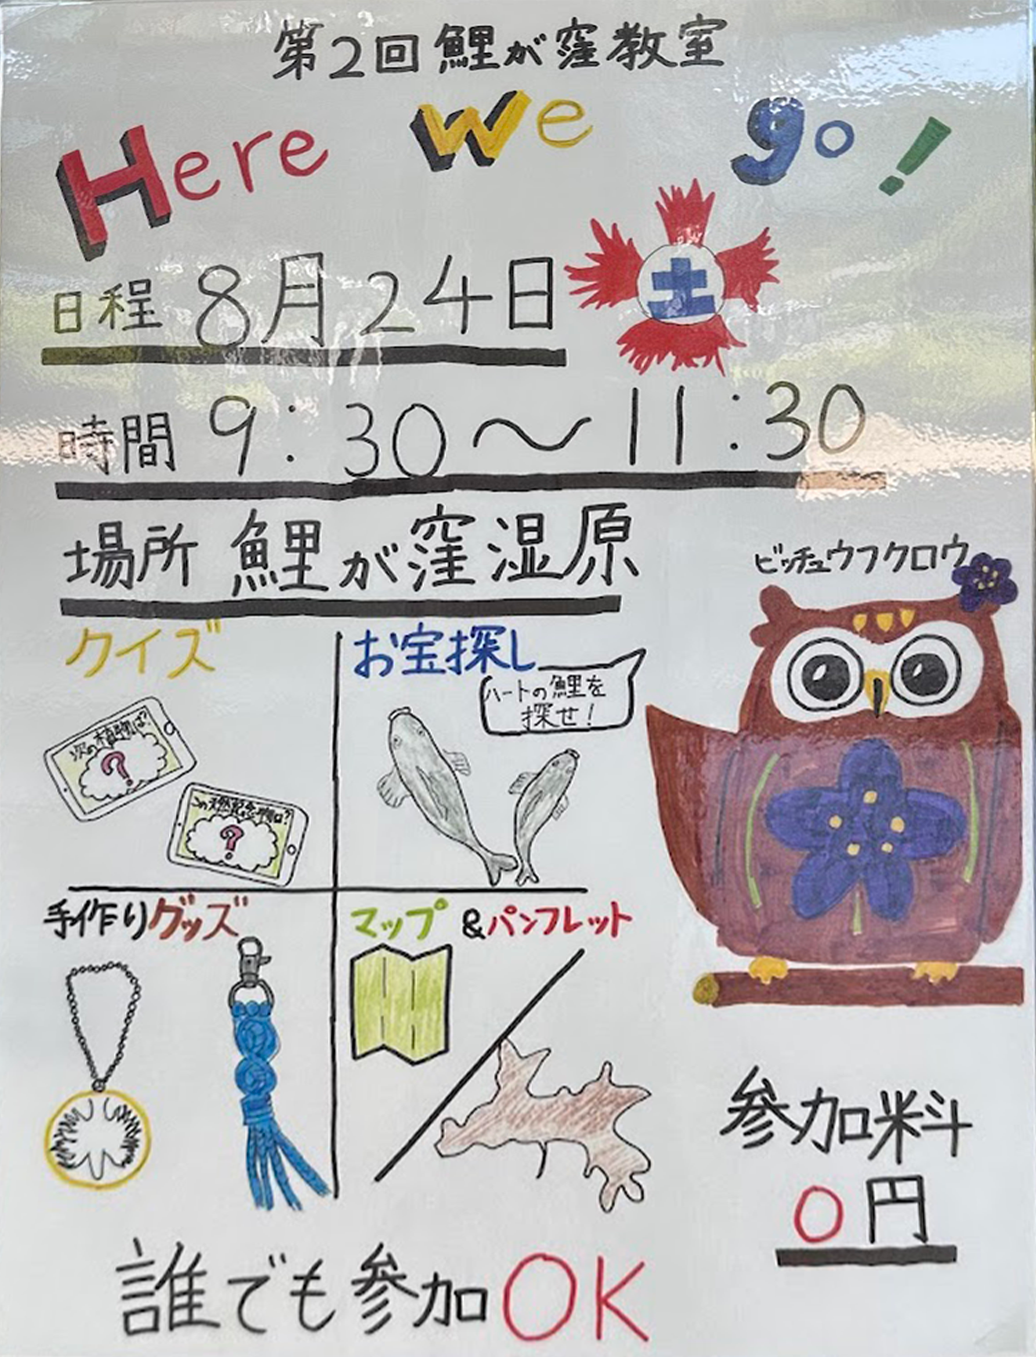 第2回鯉が窪教室
Here we go!
日程 8月24日 土
時間 9:30〜11:30
場所 鯉が窪湿原
ビッチュウフクロウ
クイズ
次の植物は?
?
この天然記念物は?
?
お宝探し
ハートの鯉を
探せ!
手作りグッズ
マップ&パンフレット
参加料
0円
誰でも参加OK